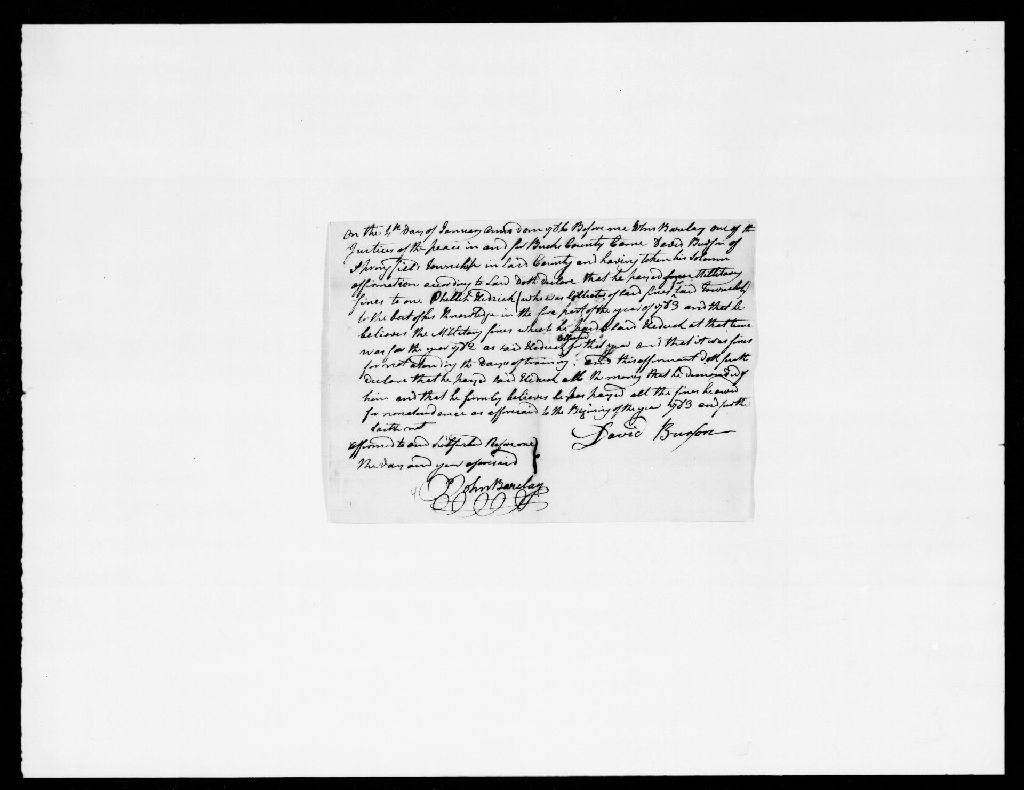 On the 4th Day of January anno dom 1786 Before me John Barclay one of the
Justices of the peace in and for Bucks County Came David Burson of
Springfield Township in Said County and having taken his Solemn
affirmation according to Law Doth declare that he payed some Military
fines to one Phillip Hedrick (who was Collector of said fines for said Township)
to the best of his Knowledge in the fore part of the year 1783 and that he
believes the Military fines which he paid to said Hedrick at that time
was for the year 1782 as said Hedrick Collected for that year and that it was fines
for not attending the Days of training; and this affirmant doth further
declare that he payed said Hedrick all the money that he demanded of
him and that he firmly believes he has payed all the fines he owed
for nonattendance as aforesaid to the Begining of the year 1783 and further
saith not
David Burson
Affirmed to and Subscribed Before me
the day and year aforesaid
John Barclay